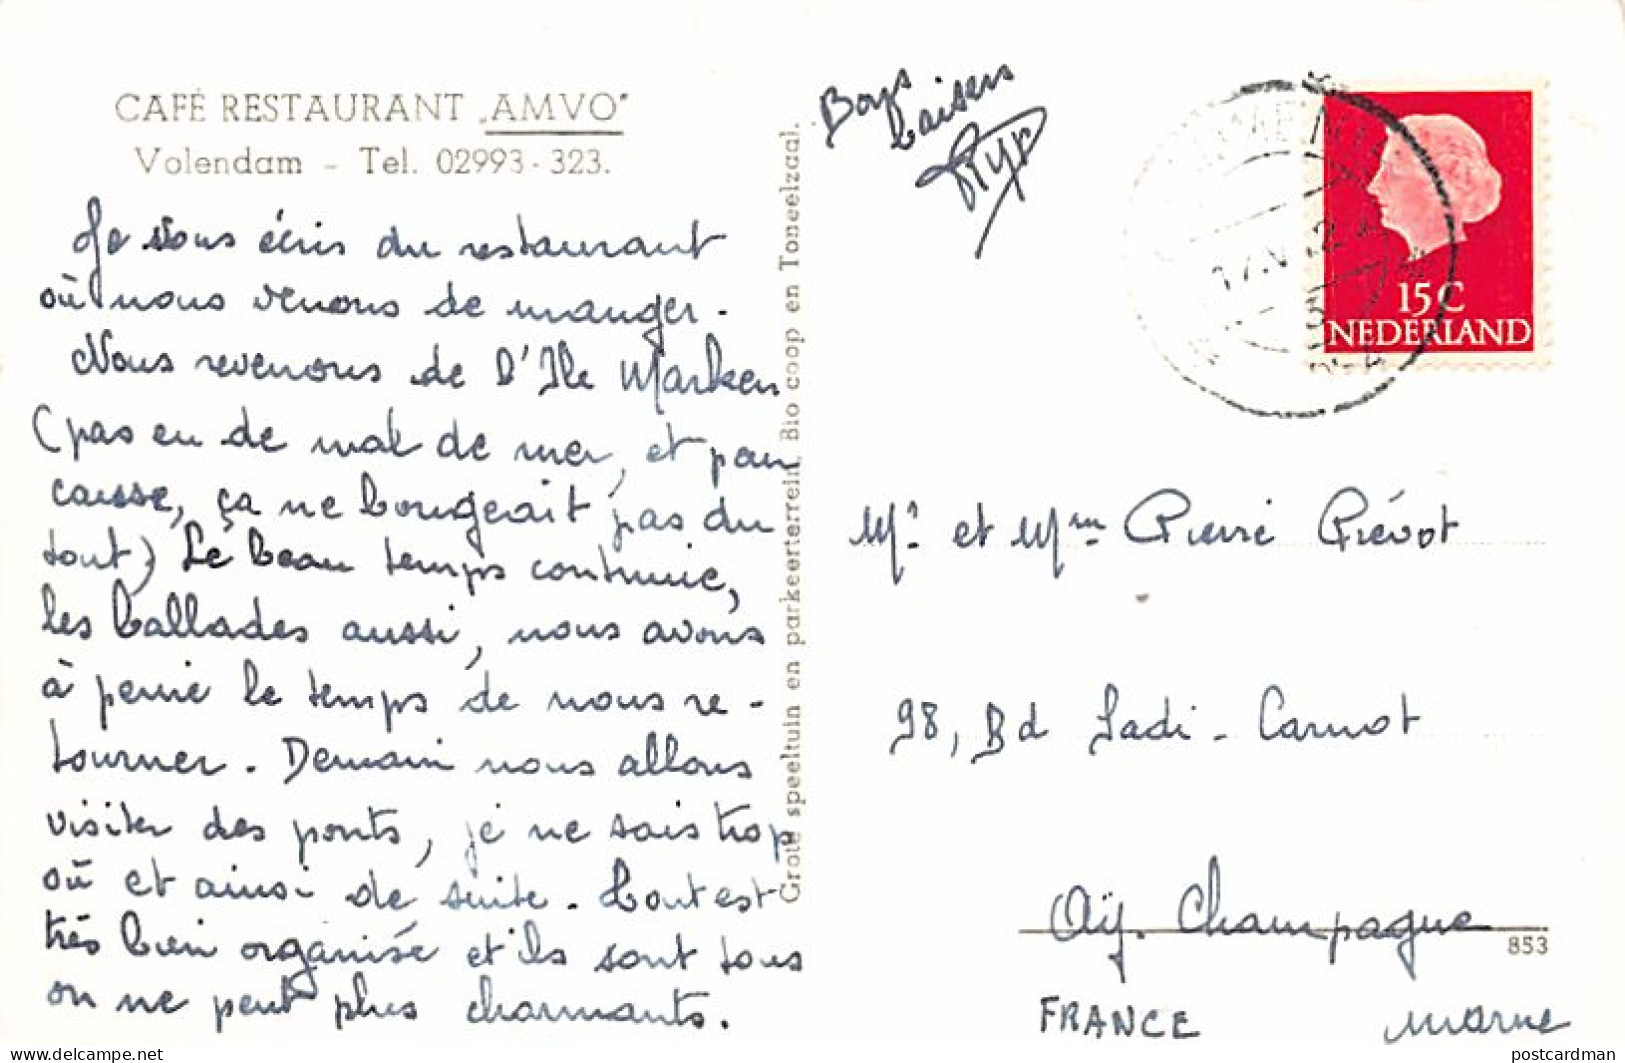 CAFÉ RESTAURANT „AMVO"
Volendam - Tel. 02993-323.
Je vous écris du restaurant
où nous venons de manger.
Nous revenons de l'Ile Marken
(pas eu de mal de mer, et pour
cause, ça ne bougeait pas du
tout) Le beau temps continue,
les ballades aussi, nous avons
à peine le temps de nous re-
tourner. Demain nous allons
visiter des ponts, je ne sais trop
où et ainsi de suite. Tout est
très bien organisé et ils sont tous
on ne peut plus charmants.
Grote speeltuin en parkeerterrein. Bio coop en Toneelzaal.
Bons
baisers
15 C
NEDERLAND
Mr. et Mme Pierre Prévot
98, Bd Sadi-Carnot
Aÿ. Champagne
853
FRANCE Marne
postcardman